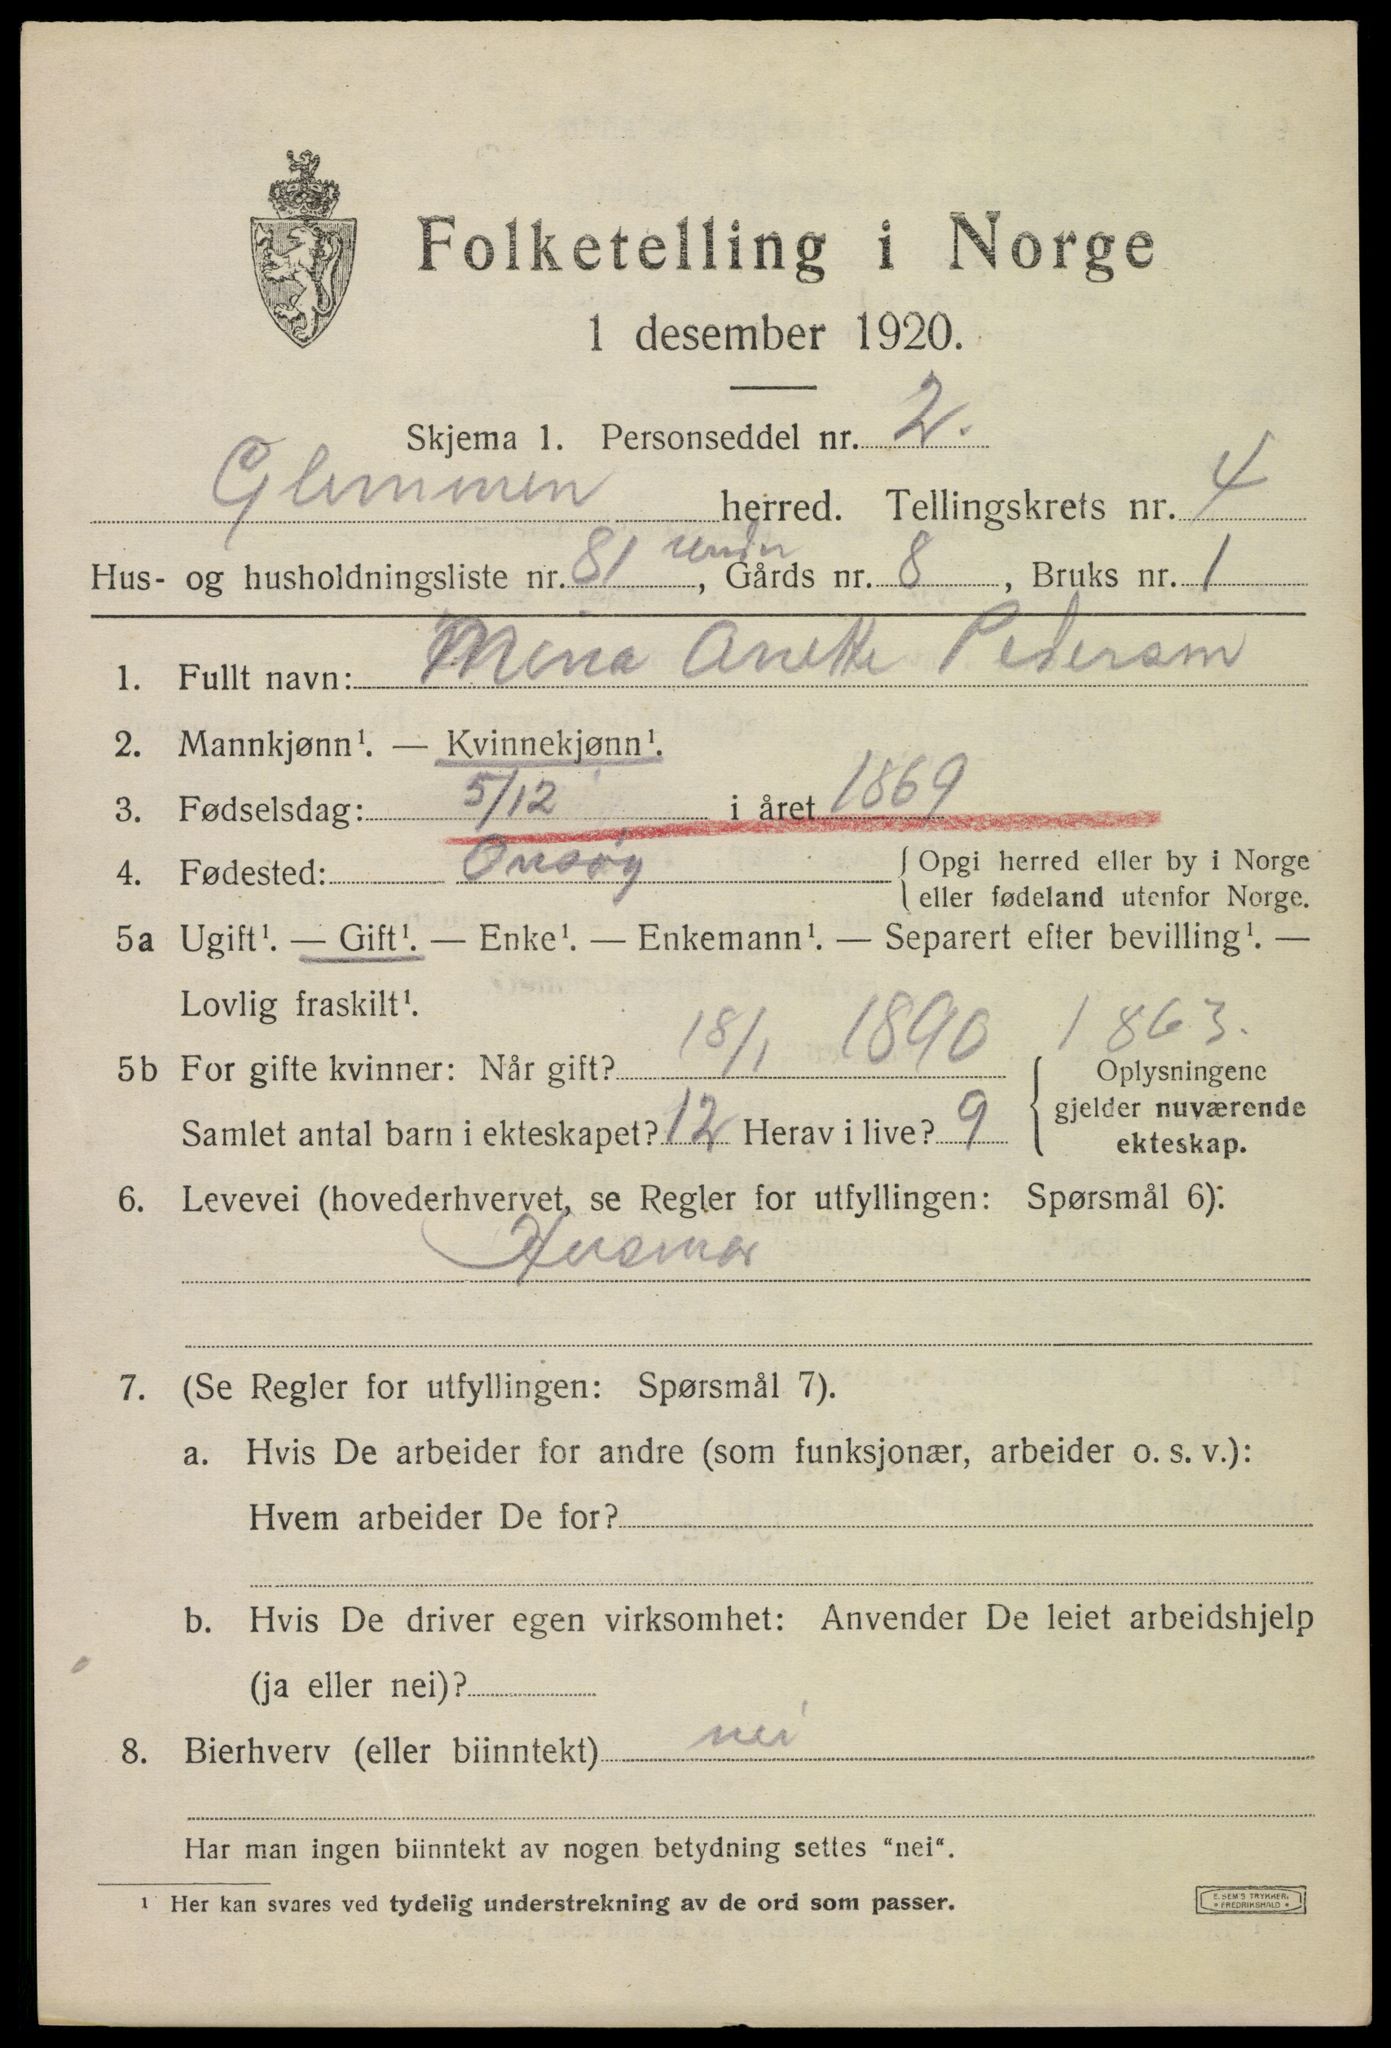 Folketelling i Norge
1 desember 1920.
Skjema 1. Personseddel nr. 2.
Glemmen herred. Tellingskrets nr. 4
Hus- og husholdningsliste nr. 81 under, Gårds nr. 8, Bruks nr. 1
1. Fullt navn: Mina Anette Pedersen
2. Mannkjønn¹. — Kvinnekjønn¹.
3. Fødselsdag: 5/12 i året 1869
4. Fødested: Onsøy { Opgi herred eller by i Norge
eller fødeland utenfor Norge.
5a Ugift¹. — Gift¹. — Enke¹. — Enkemann¹. — Separert efter bevilling¹. —
Lovlig fraskilt¹.
1863.
5b For gifte kvinner: Når gift? 18/1 1890 { Oplysningene
gjelder nuværende
ekteskap.
Samlet antal barn i ekteskapet? 12 Herav i live? 9
6. Levevei (hovederhvervet, se Regler for utfyllingen: Spørsmål 6):
Husmor
7. (Se Regler for utfyllingen: Spørsmål 7).
a. Hvis De arbeider for andre (som funksjonær, arbeider o. s. v.):
Hvem arbeider De for?
b. Hvis De driver egen virksomhet: Anvender De leiet arbeidshjelp
(ja eller nei)?
8. Bierhverv (eller biinntekt) nei
Har man ingen biinntekt av nogen betydning settes "nei".
¹ Her kan svares ved tydelig understrekning av de ord som passer.
E. SEM'S TRYKKERI
* FREDRIKSHALD *